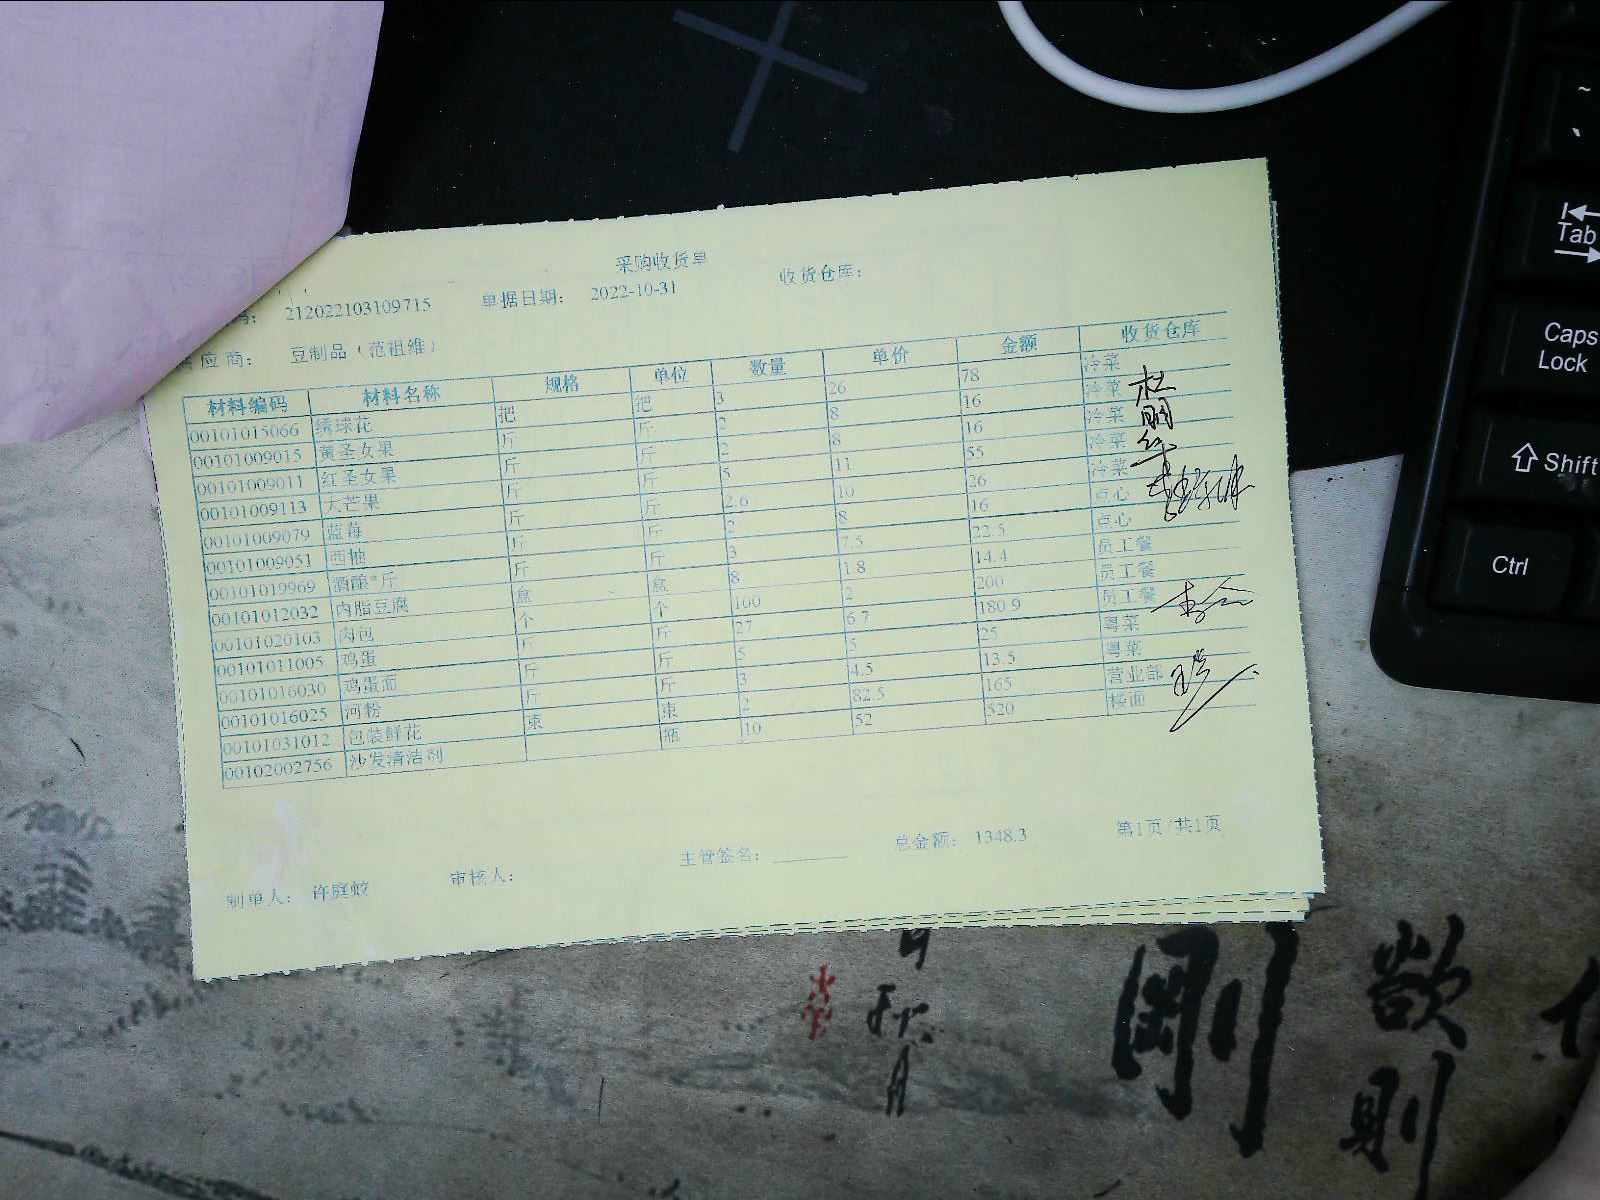 采购收货单
212022103109715 单据日期： 2022-10-31 收货仓库：
应商： 豆制品（范祖维）
材料编码 材料名称 规格 单位 数量 单价 金额 收货仓库
00101015066 绣球花 把 把 3 26 78 冷菜
00101009015 黄圣女果 斤 斤 2 8 16 冷菜
00101009011 红圣女果 斤 斤 2 8 16 冷菜
00101009113 大芒果 斤 斤 5 11 55 冷菜
00101009079 蓝莓 斤 斤 2.6 10 26 冷菜
00101009051 西柚 斤 斤 2 8 16 点心
00101019969 酒酿*斤 斤 斤 3 7.5 22.5 点心
00101012032 内脂豆腐 盒 盒 8 1.8 14.4 员工餐
00101020103 肉包 个 个 100 2 200 员工餐
00101011005 鸡蛋 斤 斤 27 6.7 180.9 员工餐
00101016030 鸡蛋面 斤 斤 5 5 25 粤菜
00101016025 河粉 斤 斤 3 4.5 13.5 粤菜
00101031012 包装鲜花 束 束 2 82.5 165 营业部
00102002756 沙发清洁剂 瓶 10 52 520 楼面
主管签名： 总金额： 1348.3 第1页/共1页
制单人： 许庭蛟 审核人：
~
Tab
Caps
Lock
Shift
Ctrl
剛
欲
則
月